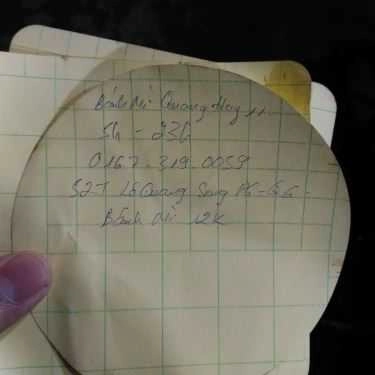 Bánh Mì Quang Huy
5h - 23h
0167.319.0059
527 Lê Quang Sung P6-Q6-
Bánh mì 12K